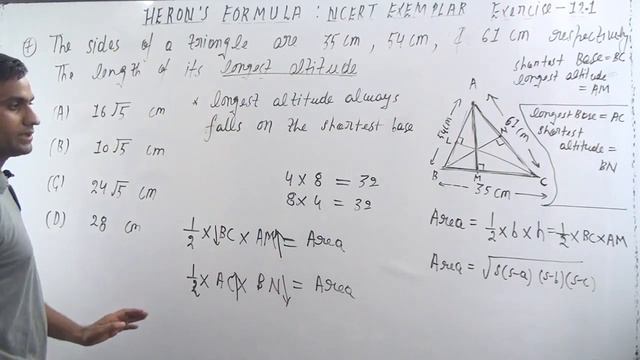 HERON'S FORMULA : NCERT EXEMPLAR Exercise-12.1
7) The sides of a triangle are 35cm, 54cm, & 61cm respectively.
The length of its longest altitude
(A) 16√5 cm
(B) 10√5 cm
(C) 24√5 cm
(D) 28 cm
* longest altitude always
falls on the shortest base
4 × 8 = 32
8 × 4 = 32
1/2 × ↓BC × AM↑ = Area
1/2 × AC↑ × BN↓ = Area
shortest Base = BC
longest altitude
= AM
longest Base = AC
shortest
altitude =
BN
A
54cm
61cm
L
N
B
M
C
35cm
Area = 1/2 × b × h = 1/2 × BC × AM
Area = √s(s-a)(s-b)(s-c)